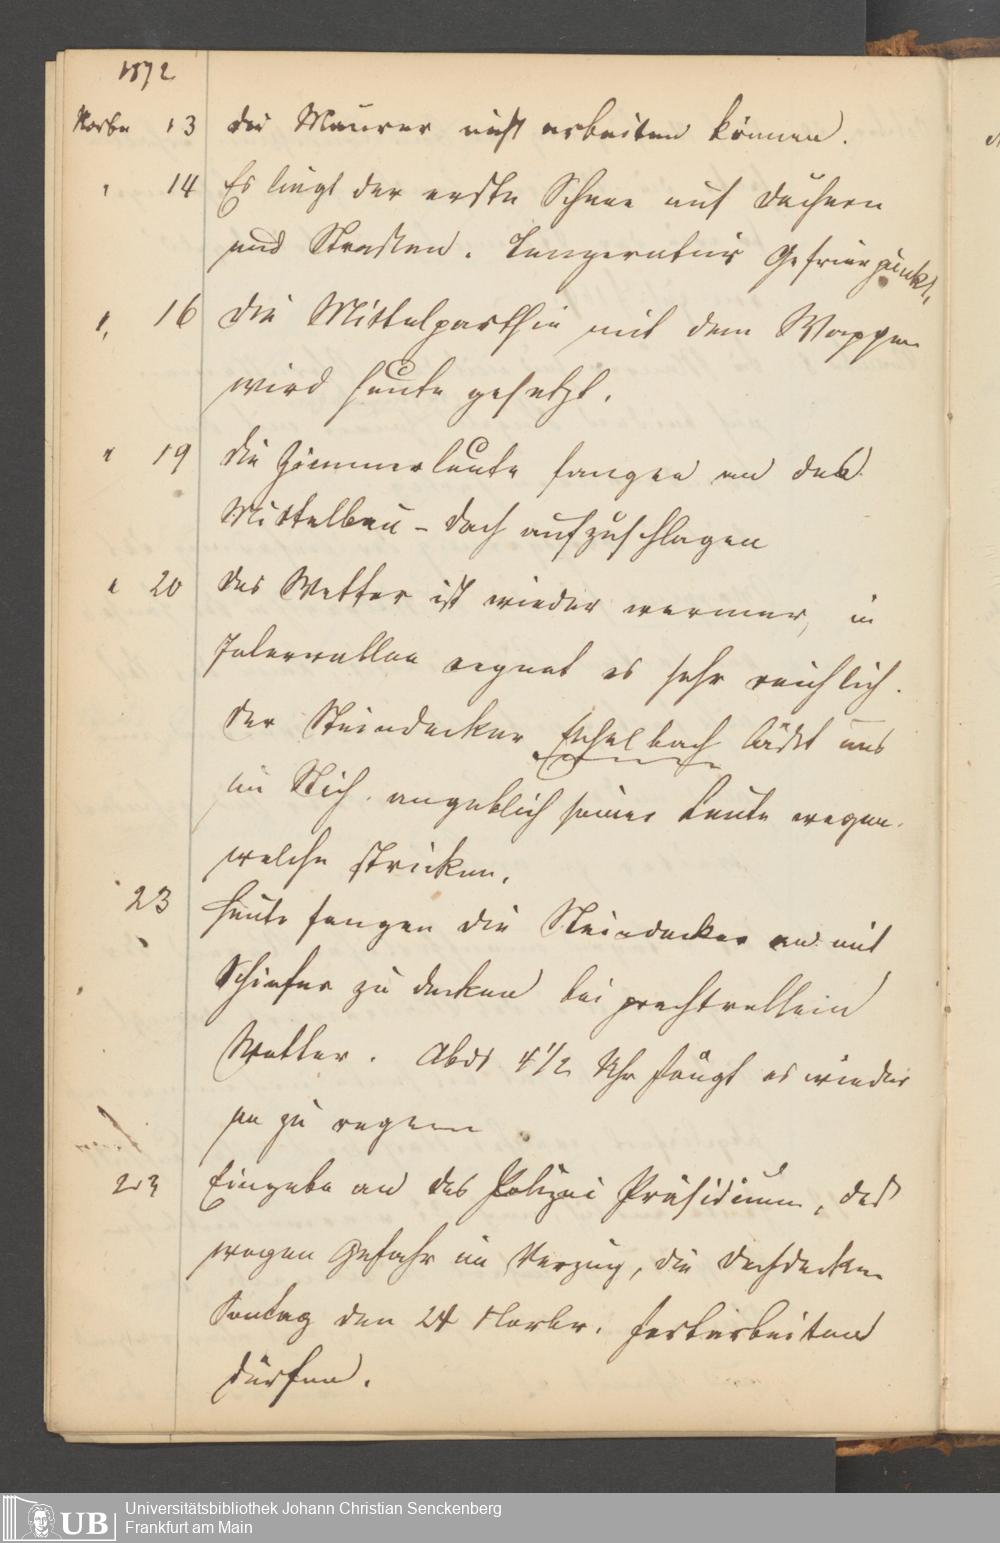 1872
Novbr 13 die Maurer nicht arbeiten können.
" 14 Es liegt der erste Schnee auf Dächern
und Straßen. Temperatur Gefrierpunkt.
" 16 Die Mittelparthie mit dem Wappen
wird heute gesetzt.
" 19 Die Zimmerleute fangen an das
Mittelbau-Dach aufzuschlagen
" 20 Das Wetter ist wieder warmer, in
Intervallen regnet es sehr reichlich.
Der Steindecker Eschelbach läßt uns
im Stich. angeblich seiner Leute wegen.
welche stricken.
23 Heute fangen die Steindecker an mit
Schiefer zu decken bei prachtvollem
Wetter. Abds 4 1/2 Uhr fängt es wieder
an zu regnen
23 Eingabe an das Polizei Präsidium, daß
wegen Gefahr im Verzug, die Dachdecker
Sontag den 24 Novbr. fortarbeiten
dürfen.
UB Universitätsbibliothek Johann Christian Senckenberg
Frankfurt am Main